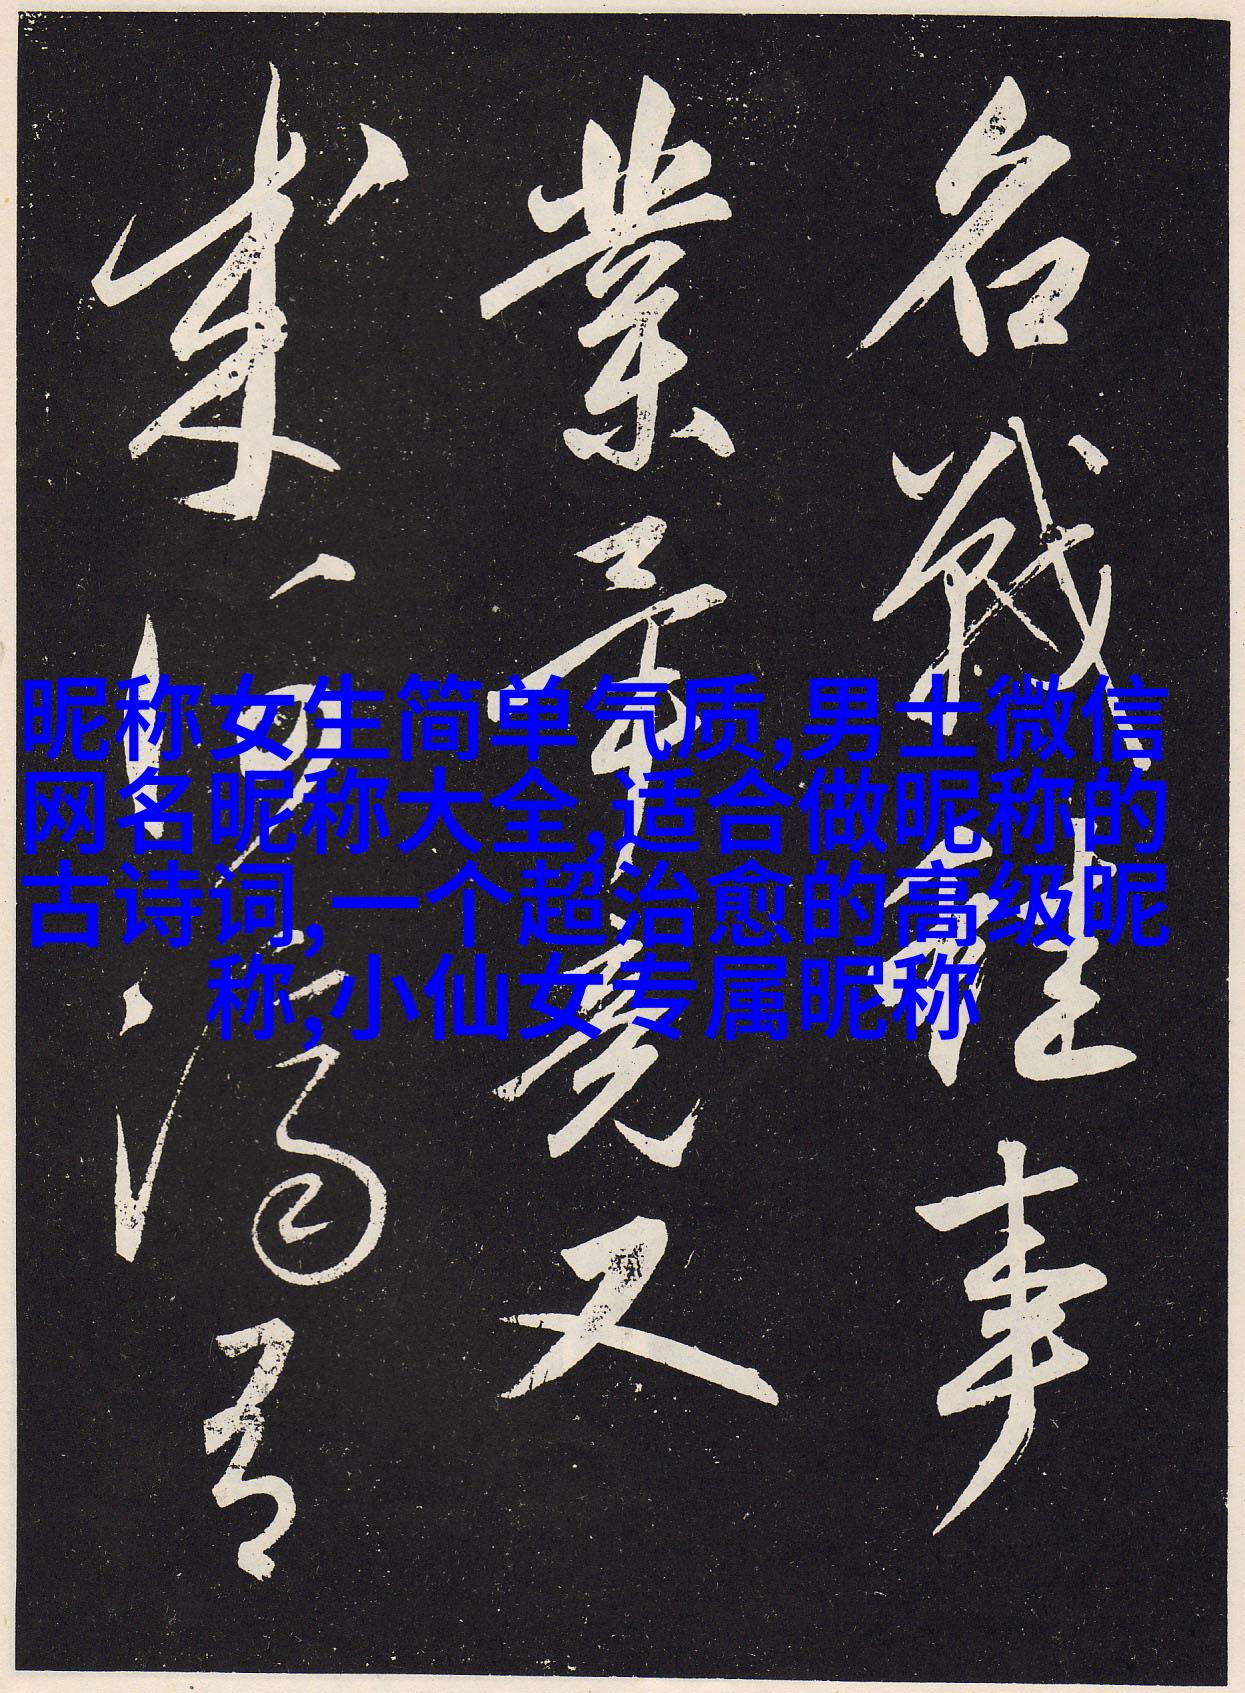 名戦雖事
業可竟又
成何傷言
昵称女生简单气质,男士微信
网名昵称大全,适合做昵称的
古诗词,一个超治愈的高级昵
称,小仙女专属昵称